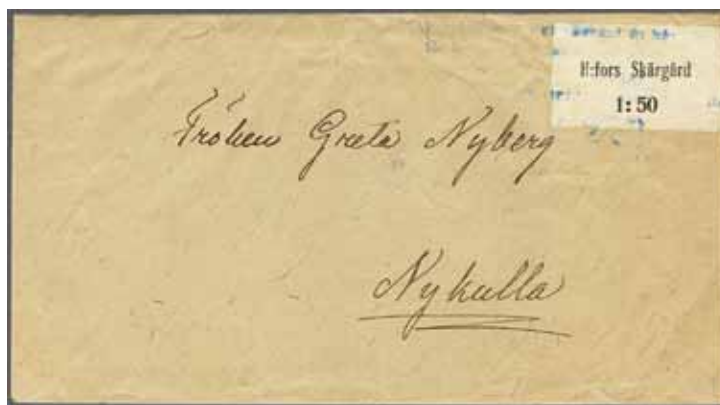 H:fors Skärgård
1:50
Fröken Greta Nyberg
Nykulla